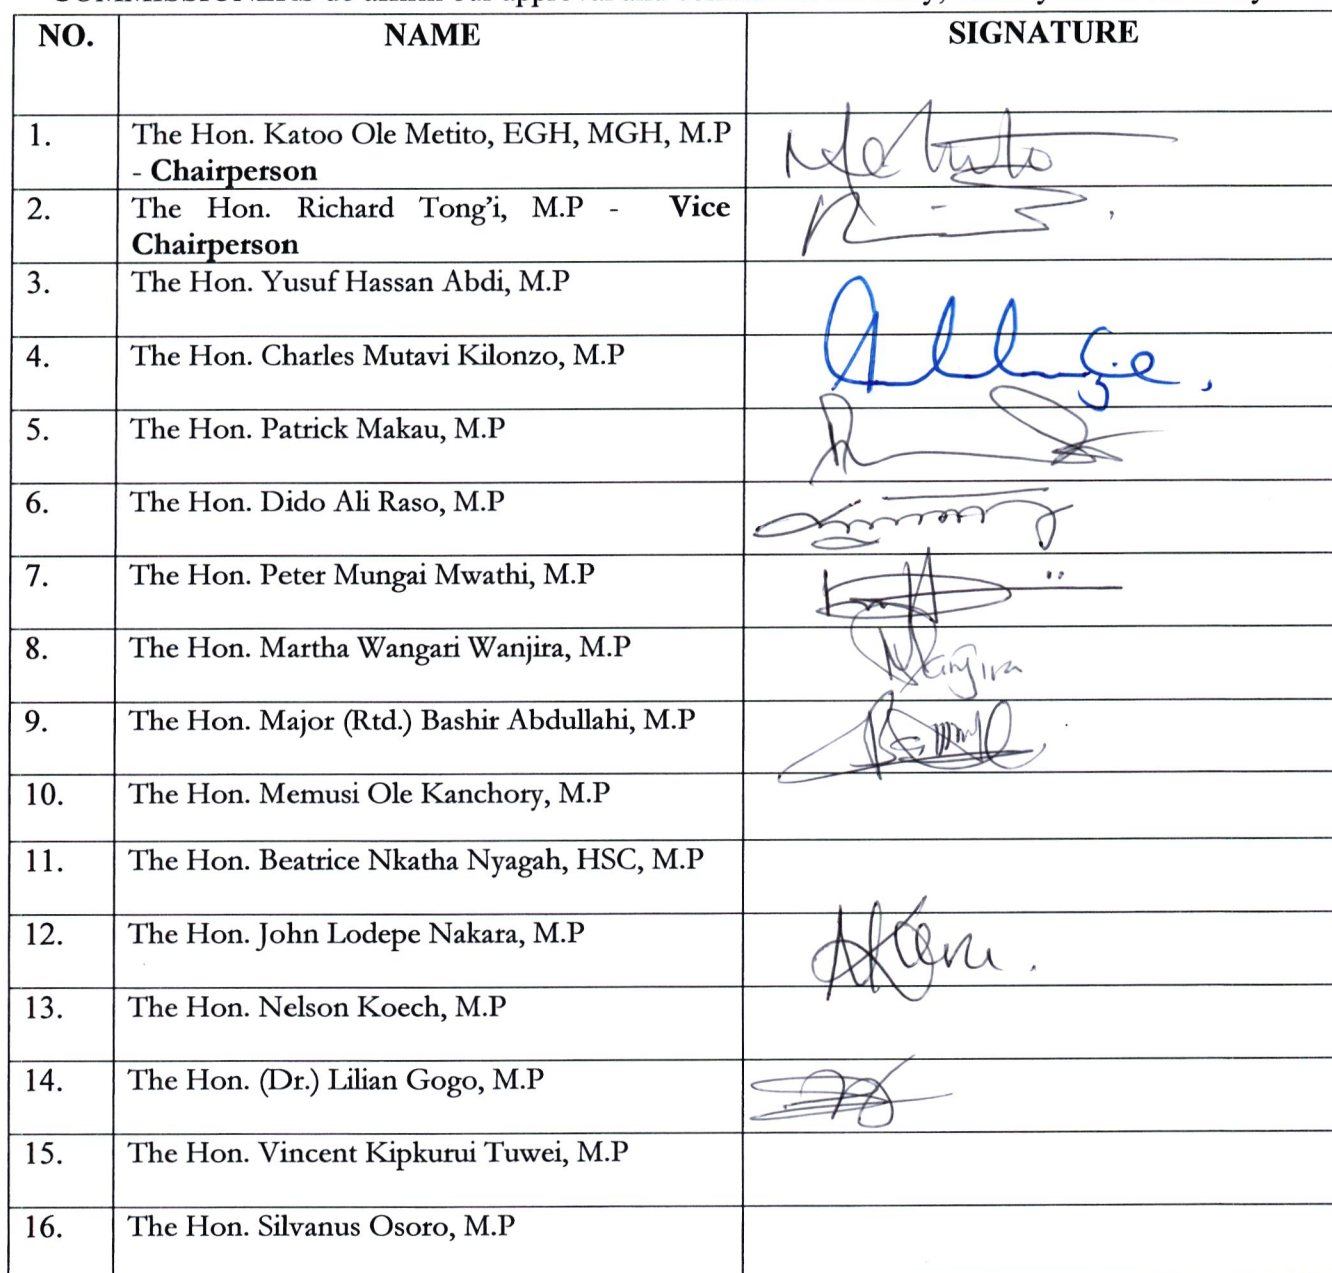 NO. NAME SIGNATURE
1. The Hon. Katoo Ole Metito, EGH, MGH, M.P
- Chairperson
Metito
2. The Hon. Richard Tong’i, M.P - Vice
Chairperson
3. The Hon. Yusuf Hassan Abdi, M.P
4. The Hon. Charles Mutavi Kilonzo, M.P
5. The Hon. Patrick Makau, M.P
6. The Hon. Dido Ali Raso, M.P
7. The Hon. Peter Mungai Mwathi, M.P
8. The Hon. Martha Wangari Wanjira, M.P
9. The Hon. Major (Rtd.) Bashir Abdullahi, M.P
10. The Hon. Memusi Ole Kanchory, M.P
11. The Hon. Beatrice Nkatha Nyagah, HSC, M.P
12. The Hon. John Lodepe Nakara, M.P
13. The Hon. Nelson Koech, M.P
14. The Hon. (Dr.) Lilian Gogo, M.P
15. The Hon. Vincent Kipkurui Tuwei, M.P
16. The Hon. Silvanus Osoro, M.P